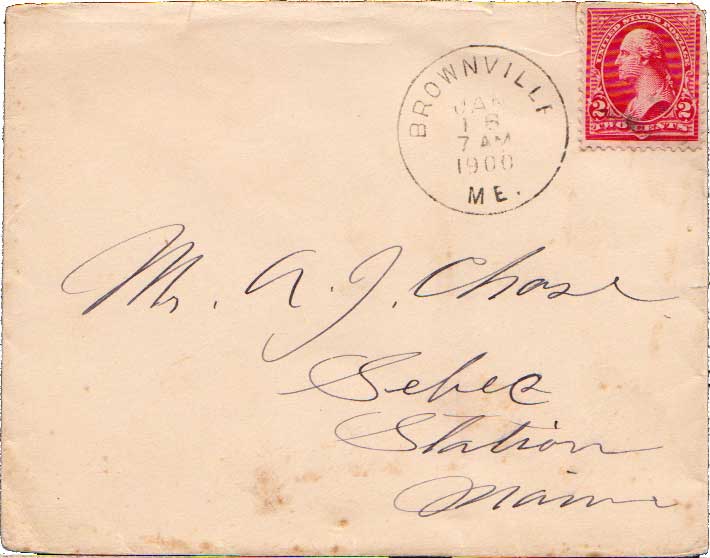 BROWNVILLE
JAN
7 AM
1900
ME.
UNITED STATES POSTAGE
2 2
TWO CENTS
Mr. A. J. Chase
Sebec
Station
Maine